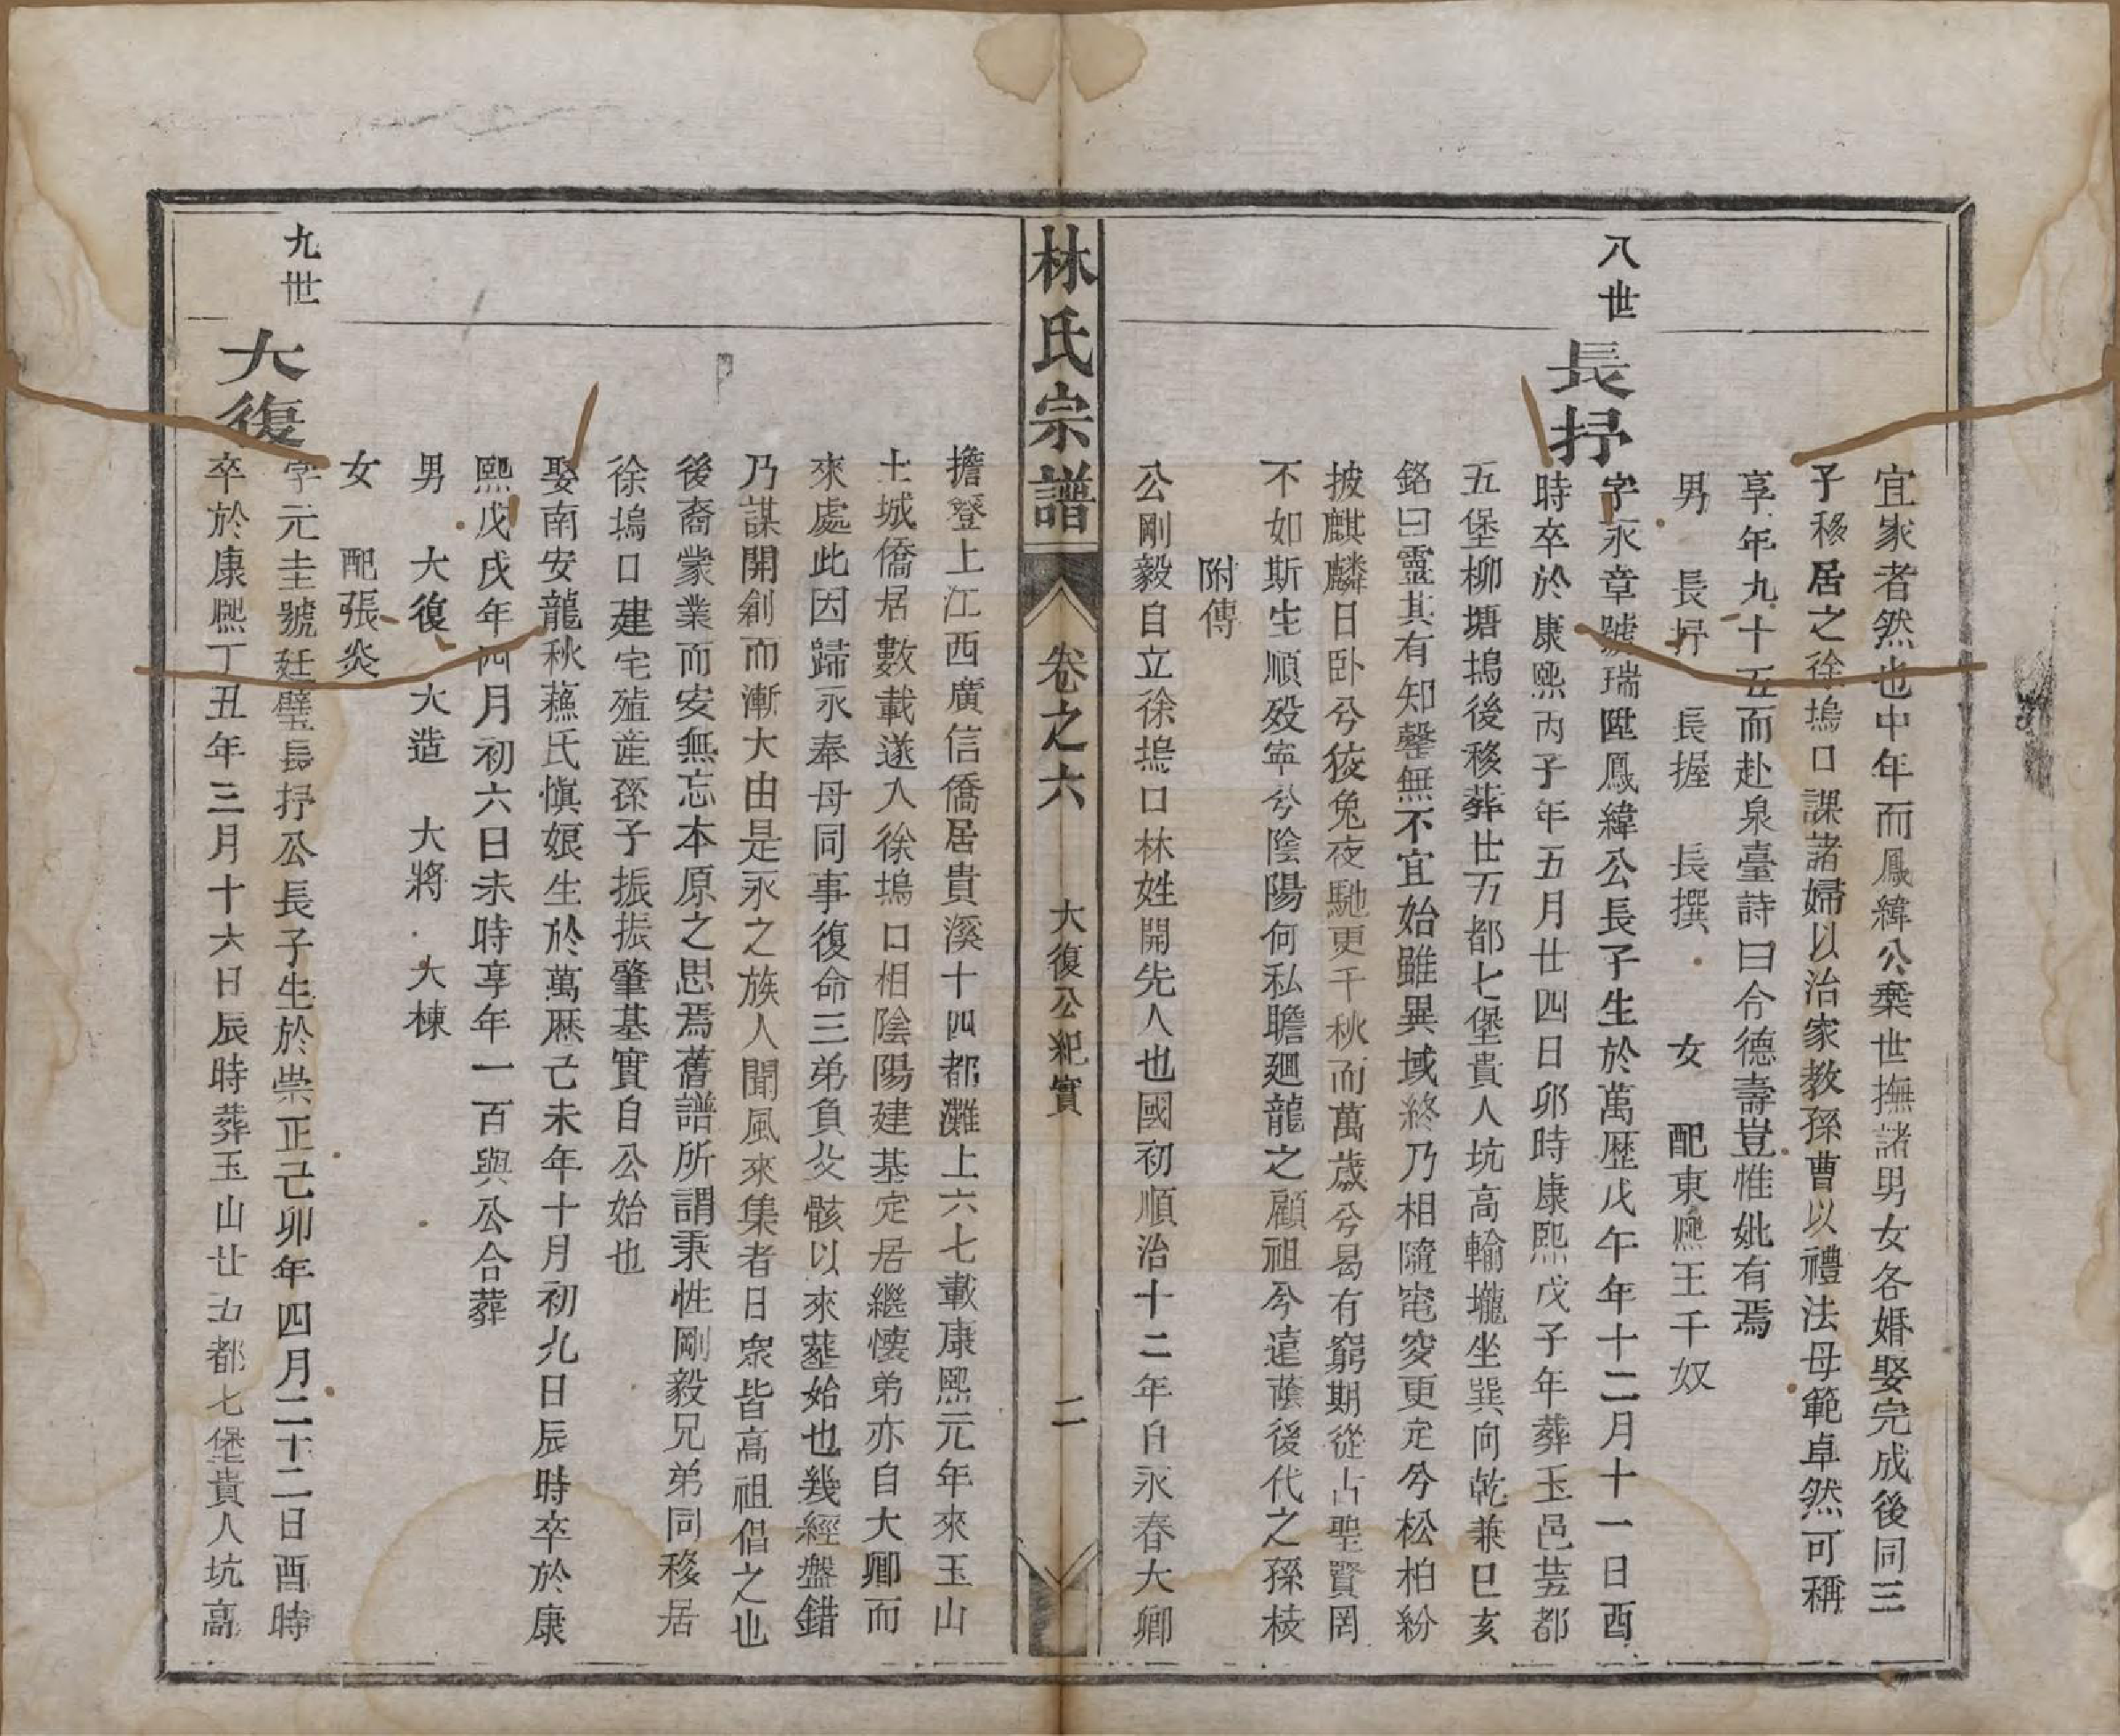 宜家者然也中年而鳳緯公棄世撫諸男女各婚娶完成後同三
子移居之徐塢口課諸婦以治家教孫曹以禮法母範卓然可稱
享年九十五而赴泉臺詩曰令德壽豈惟妣有焉
男 長抒 長握 長撰 女 配東熈王千奴
八世
長抒
字永章號瑞陞鳳緯公長子生於萬歷戊午年十二月十一日酉
時卒於康熙丙子年五月廿四日卯時康熙戊子年葬玉邑芸都
五堡柳塘塢後移葬廿五都七堡貴人坑高輸壠坐巽向乾兼巳亥
銘曰靈其有知罄無不宜始雖異域終乃相隨窀穸更定兮松柏紛
披麒麟日卧兮狡兔夜馳更千秋而萬歲兮曷有窮期從占聖賢罔
不如斯生順殁寧兮陰陽何私瞻廻龍之顧祖兮遠蔭後代之孫枝
附傳
公剛毅自立徐塢口林姓開先人也國初順治十二年自永春大卿
林氏宗譜 卷之六 大復公紀實 二
擔簦上江西廣信僑居貴溪十四都灘上六七載康熙元年來玉山
土城僑居數載遂入徐塢口相陰陽建基定居繼懷弟亦自大卿而
來處此因歸永奉母同事復命三弟負父骸以來塟始也幾經盤錯
乃謀開創而漸大由是永之族人聞風來集者日衆皆高祖倡之也
後裔業業而安無忘本原之思焉舊譜所謂秉性剛毅兄弟同移居
徐塢口建宅殖產孫子振振肇基實自公始也
娶南安龍秋蘓氏愼娘生於萬歷己未年十月初九日辰時卒於康
熙戊戌年四月初六日未時享年一百與公合葬
男 大復 大造 大將 大棟
女 配張炎
九世
大復
字元圭號廷璧長抒公長子生於崇正己卯年四月二十二日酉時
卒於康熈丁丑年三月十六日辰時葬玉山廿五都七堡貴人坑高